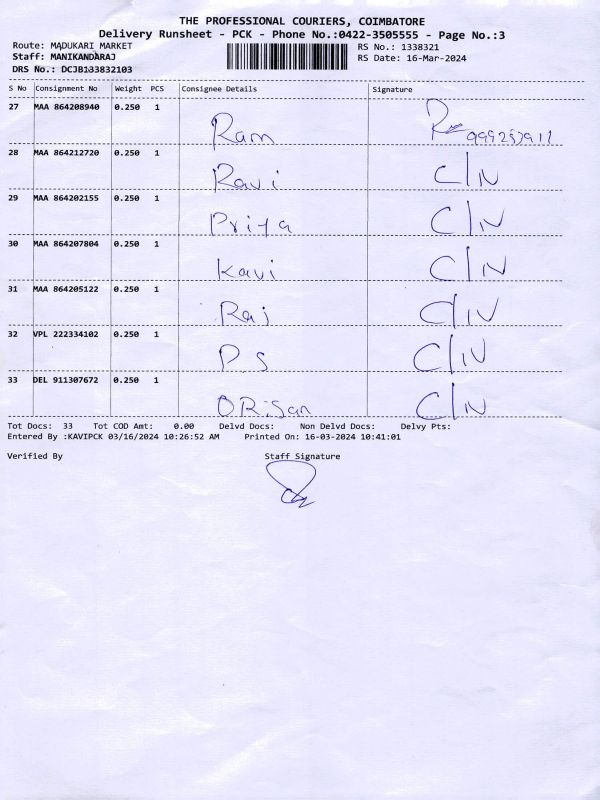 THE PROFESSIONAL COURIERS, COIMBATORE
Delivery Runsheet - PCK - Phone No.:0422-3505555 - Page No.:3
Route: MADUKARI MARKET RS No.: 1338321
Staff: MANIKANDARAJ RS Date: 16-Mar-2024
DRS No.: DCJB133832103
S No Consignment No Weight PCS Consignee Details Signature
27 MAA 864208940 0.250 1
Ram
28 MAA 864212720 0.250 1
Ravi C/N
29 MAA 864202155 0.250 1
Priya C/N
30 MAA 864207804 0.250 1
Kavi C/N
31 MAA 864205122 0.250 1
Raj C/N
32 VPL 222334102 0.250 1
P S C/N
33 DEL 911307672 0.250 1
C/N
Tot Docs: 33 Tot COD Amt: 0.00 Delvd Docs: Non Delvd Docs: Delvy Pts:
Entered By :KAVIPCK 03/16/2024 10:26:52 AM Printed On: 16-03-2024 10:41:01
Verified By Staff Signature